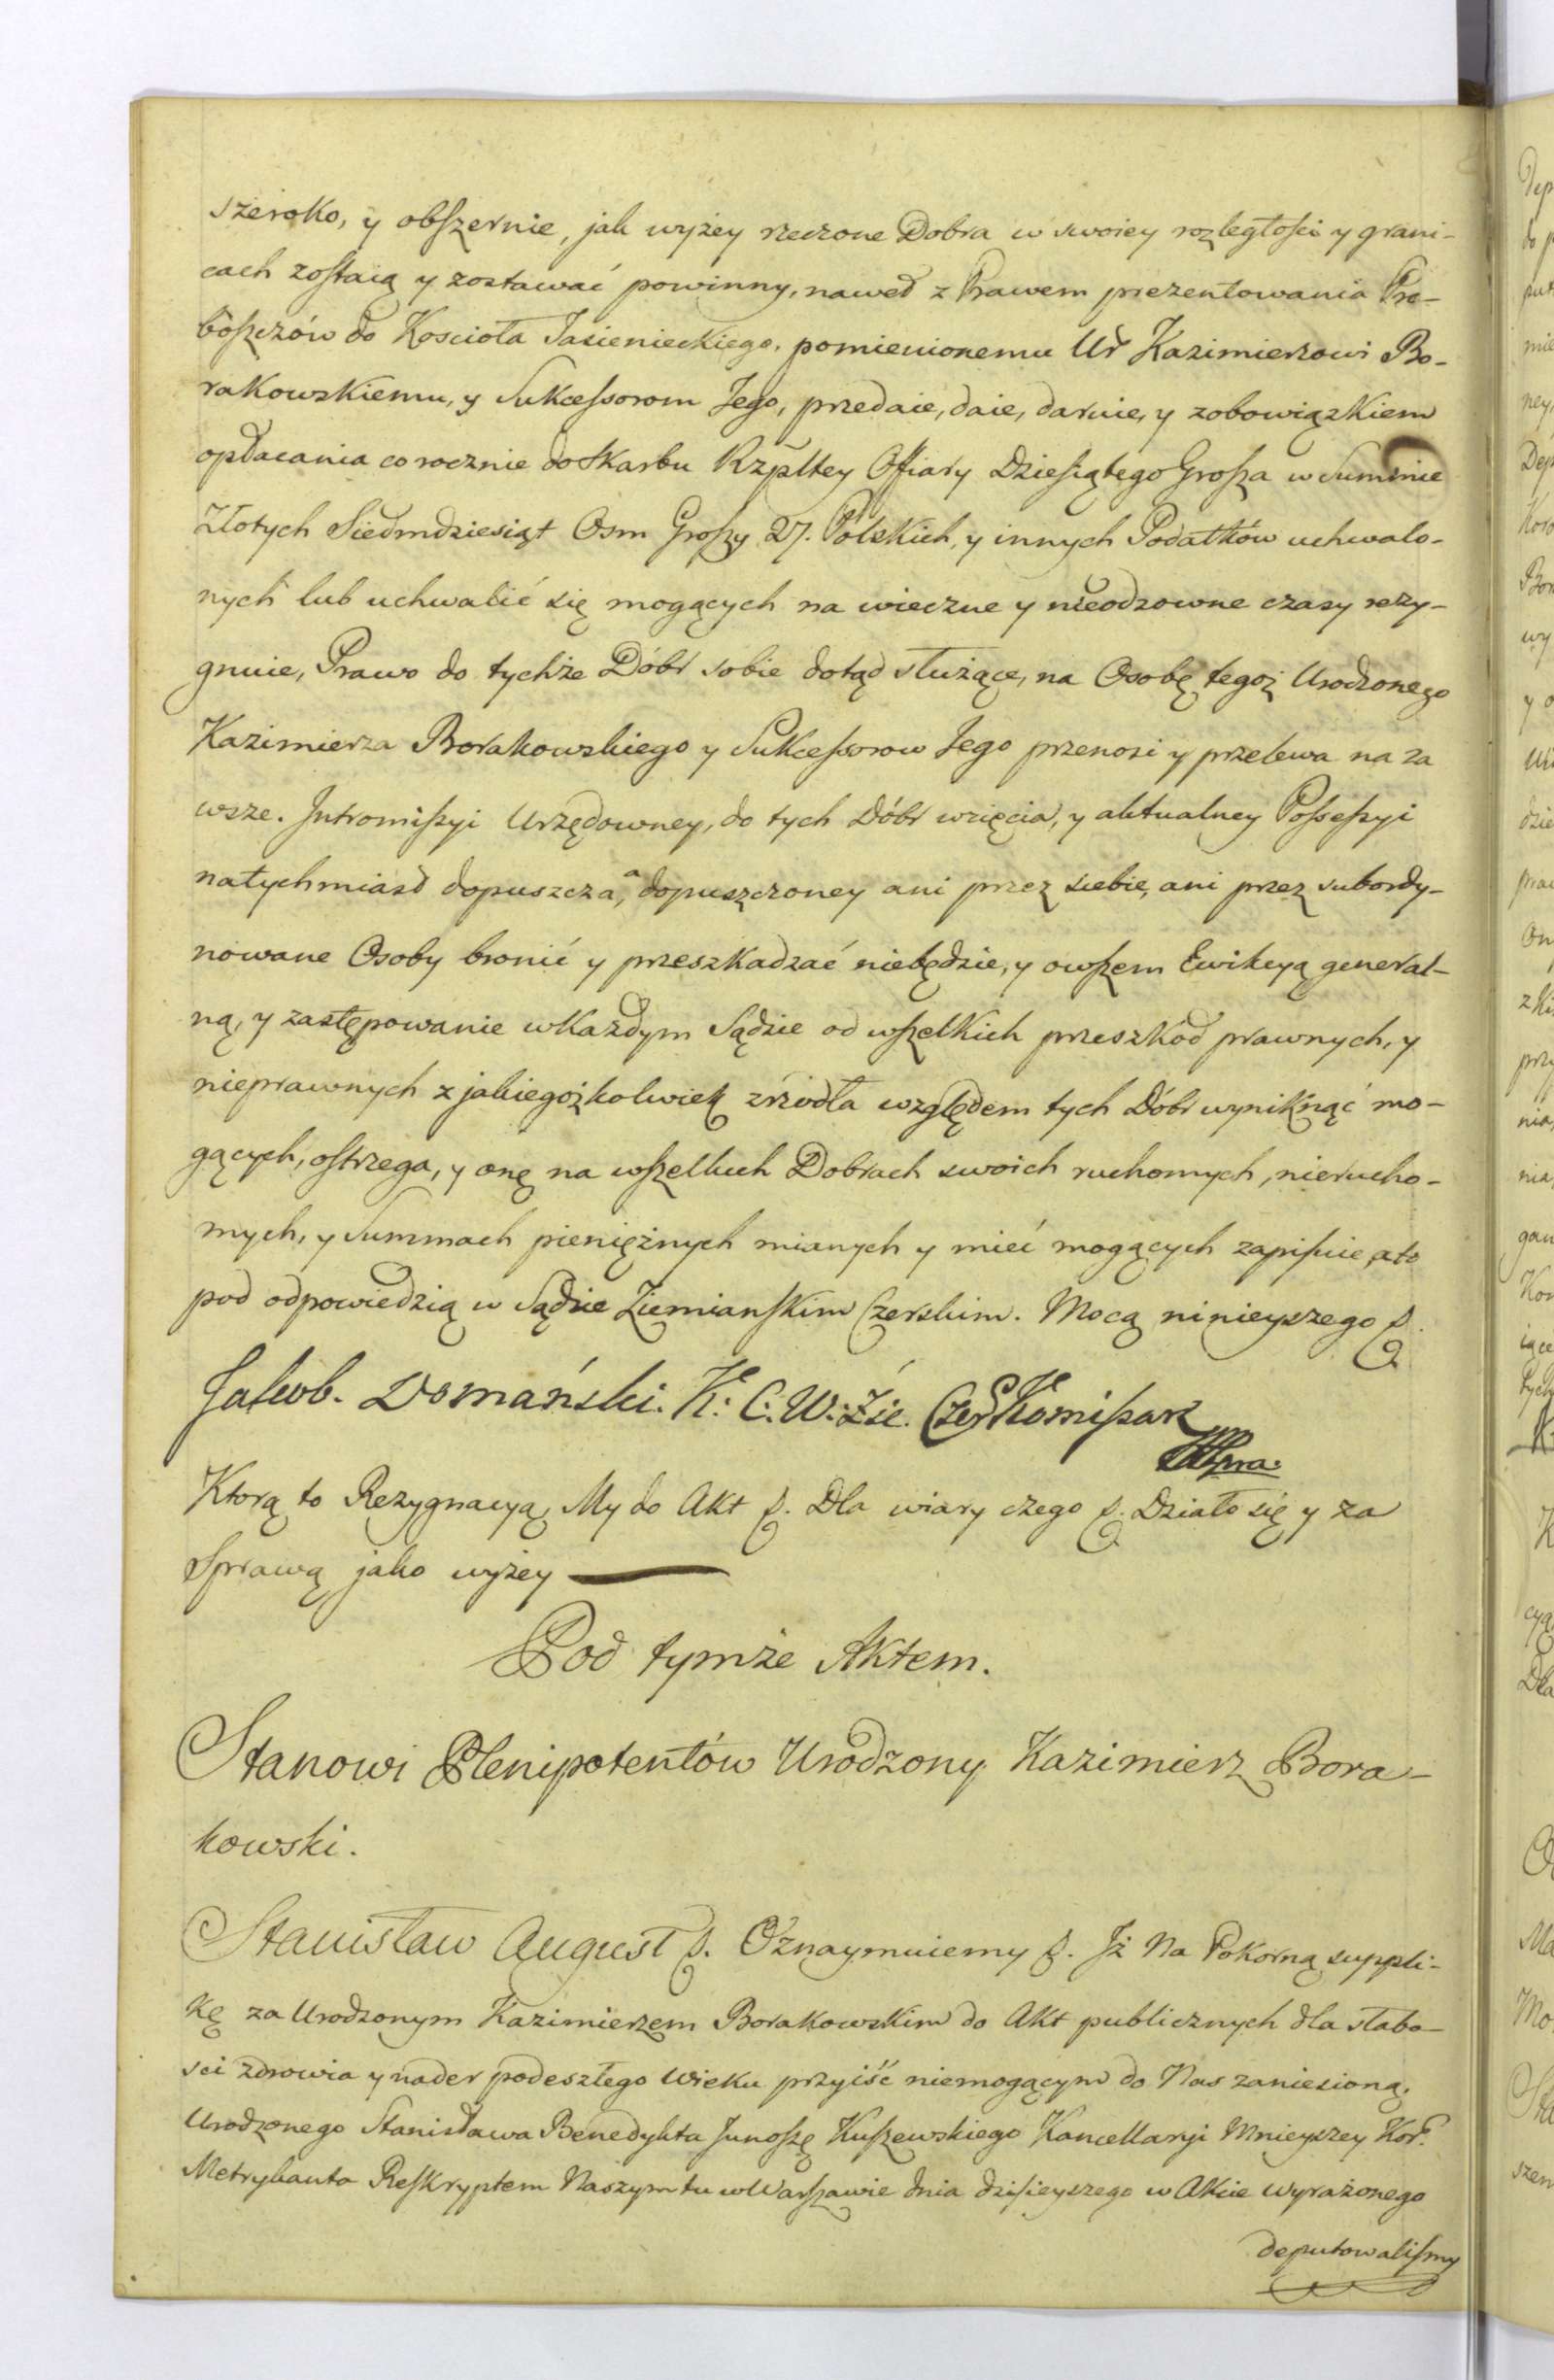 szeroko, y obſzernie, jak wyżey rzeczone Dobra w swoiey rozległości y grani-
cach zoſtaią y zostawać powinny, nawed z Prawem prezentowania Pro-
boſzczów do Kościoła Jasienieckiego, pomienionemu Ur Kazimierzowi Bo-
rakowskiemu, y Sukceſsorom Jego, przedaie, daie, daruie, y zobowiązkiem
opłacania corocznie do Skarbu Rzpltey Offiary Dzieſiątego Groſza w Summie
Złotych Siedmdziesiąt Osm Groſzy 27. Polskich, y innych Podatków uchwalo-
nych lub uchwalić się mogących na wieczne y nieodzowne czasy rezy-
gnuie, Prawo do tychże Dóbr sobie dotąd służące, na Osobę tegoż Urodzonego
Kazimierza Borakowskiego y Sukceſsorow Jego przenosi y przelewa na za
wsze. Intromiſsyi Urzędowney, do tych Dóbr wzięcia, y aktualney Poſseſsyi
natychmiast dopuszcza, a dopuszczoney ani przez siebie, ani przez subordy-
nowane Osoby bronić y przeszkadzać niebędzie, y owſzem Ewikcyą general-
ną, y zastępowanie wkażdym Sądzie od wſzelkich przeszkod prawnych, y
nieprawnych z jakiegożkolwiek zrzodła względem tych Dóbr wyniknąć mo-
gących, oſtrzega, y onę na wſzelkich Dobrach swoich ruchomych, nierucho-
mych, y Summach pieniężnych mianych y mieć mogących zapiſuie, a to
pod odpowiedzią w Sądzie Ziemianſkim Czerskim. Mocą ninieyszego &.
Jakub. Domański. K: C: W: Zie. Czer Komiſsarz
Ktorą to Rezygnacyą, My do Akt &. Dla wiary czego &. Działo się y za
Sprawą jako wyżey
Pod tymże Aktem.
Stanowi Plenipotentów Urodzony Kazimierz Bora-
kowski.
Stanisław August &. Oznaymuiemy &. Iż Na Pokorną suppli-
kę za Urodzonym Kazimierzem Borakowskim do Akt publicznych dla słabo-
sci zdrowia y nader podeszłego wieku przyiść niemogącym do Nas zaniesioną,
Urodzonego Stanisława Benedykta Junoſzę Kuſzewskiego Kancellaryi Mnieyszey Kor:
Metrykanta Reſkryptem Naszym tu w Warſzawie dnia dziſieyszego w Akcie wyrażonego
deputowaliſmy